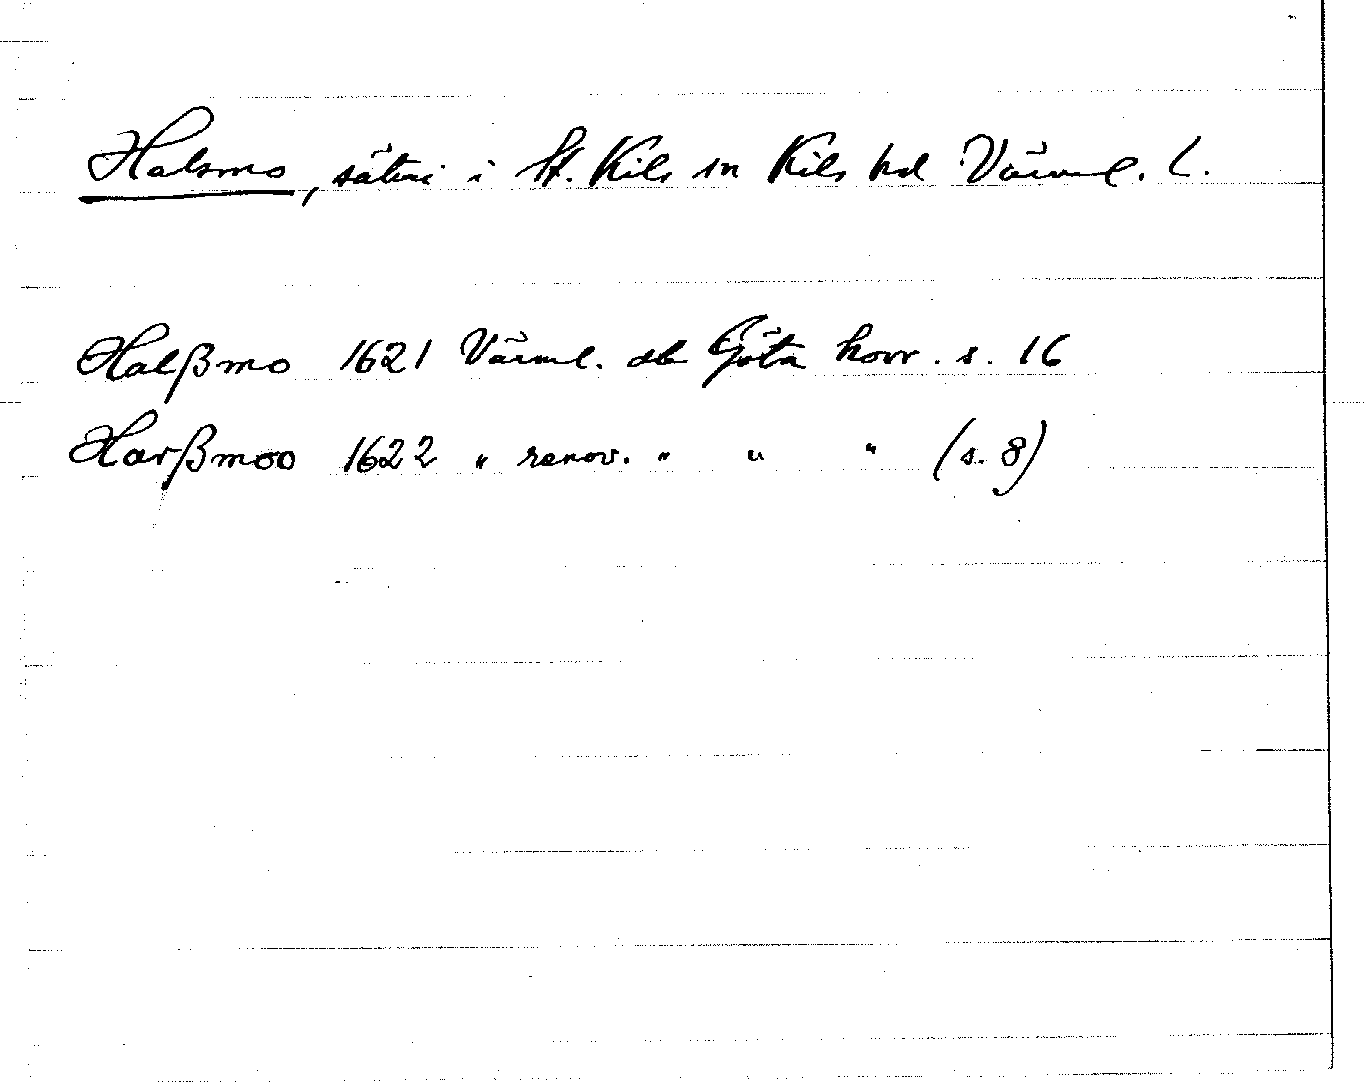 Halsmo, säteri i St. Kils sn Kils hd Värml. l.
Halßmo 1621 Värml. db Göta hovr. s. 16
Harßmoo 1622 " renov. " " " (s. 8)